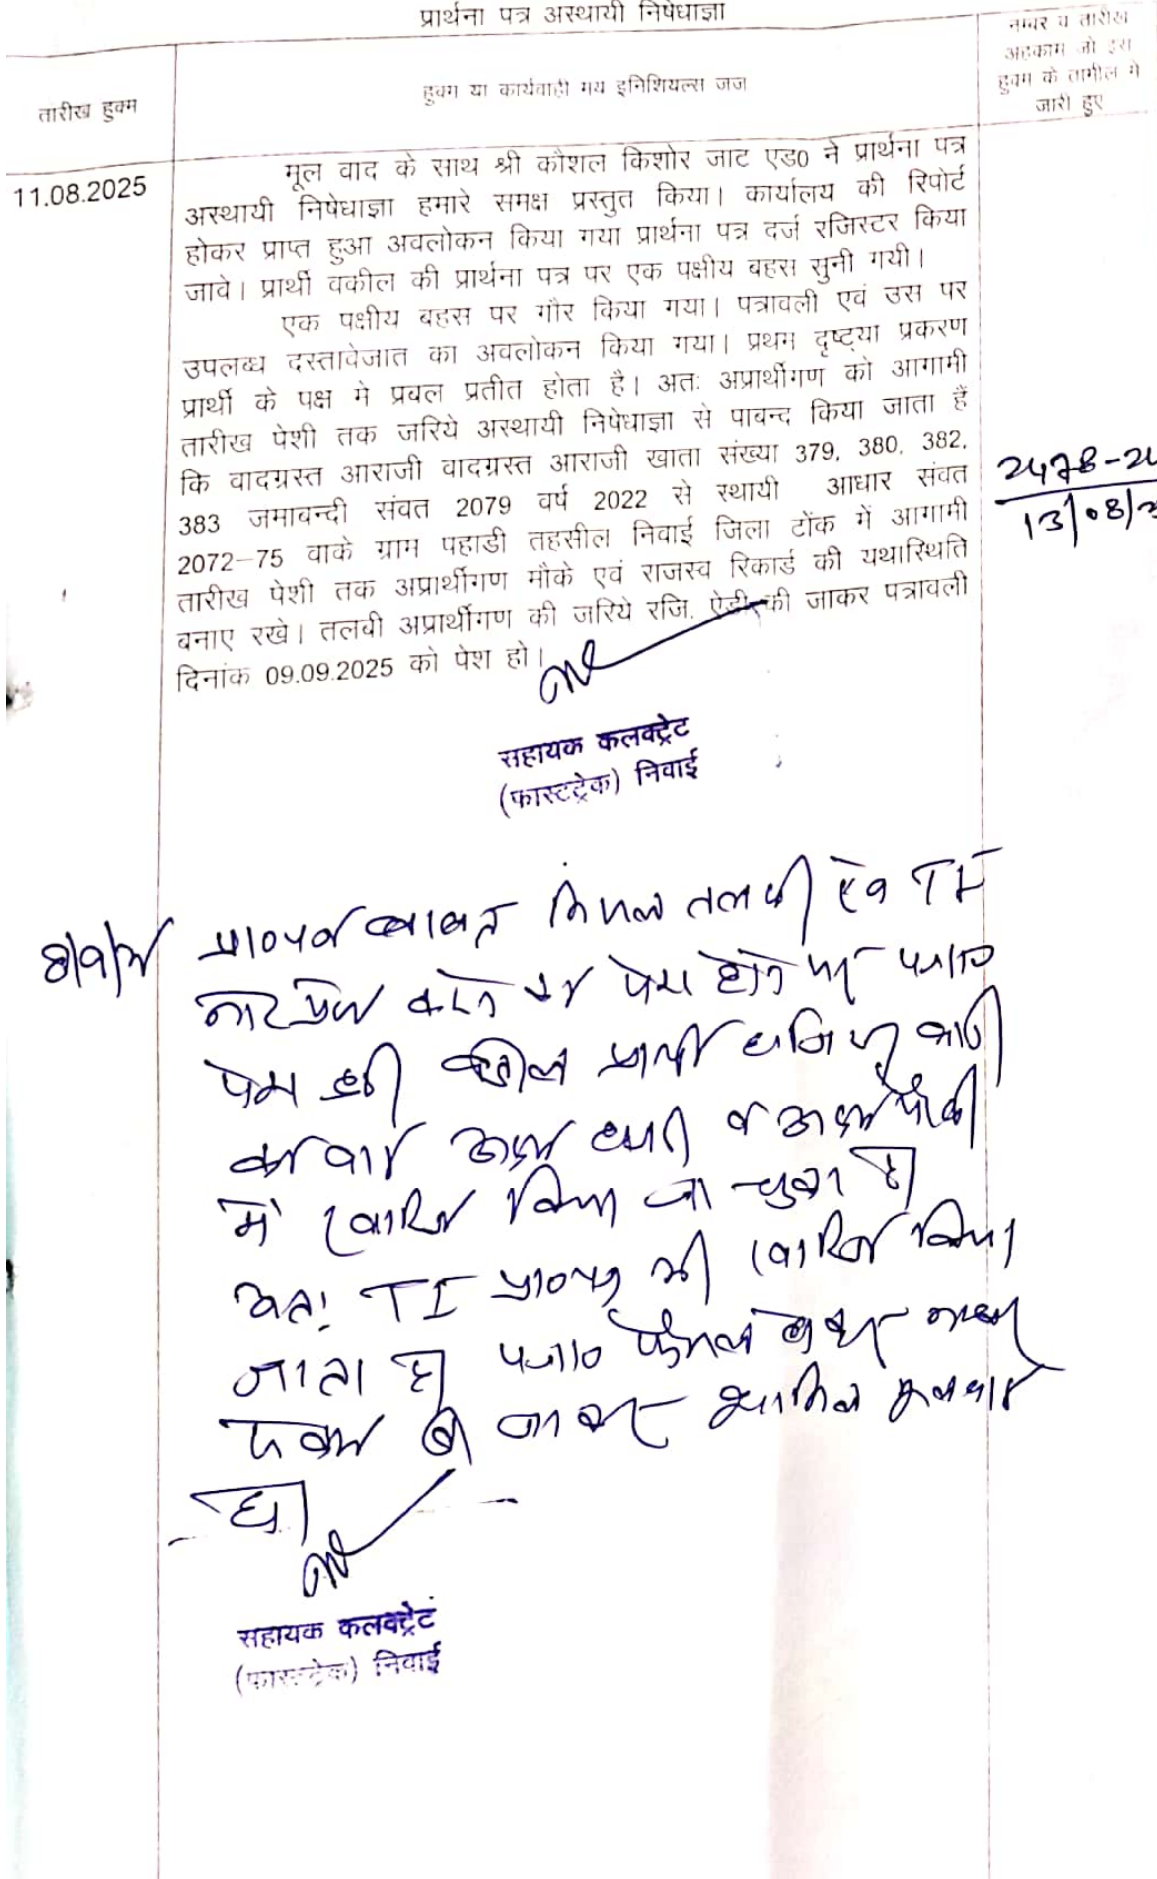 प्रार्थना पत्र अस्थायी निषेधाज्ञा
तारीख हुक्म
हुक्म या कार्यवाही मय इनिशियल्स जज
नम्बर व तारीख
अहकाम जो इस
हुक्म के तामील मे
जारी हुए
11.08.2025
मूल वाद के साथ श्री कौशल किशोर जाट एड0 ने प्रार्थना पत्र
अस्थायी निषेधाज्ञा हमारे समक्ष प्रस्तुत किया। कार्यालय की रिपोर्ट
होकर प्राप्त हुआ अवलोकन किया गया प्रार्थना पत्र दर्ज रजिस्टर किया
जावे। प्रार्थी वकील की प्रार्थना पत्र पर एक पक्षीय बहस सुनी गयी।
एक पक्षीय बहस पर गौर किया गया। पत्रावली एवं उस पर
उपलब्ध दस्तावेजात का अवलोकन किया गया। प्रथम दृष्ट्या प्रकरण
प्रार्थी के पक्ष मे प्रबल प्रतीत होता है। अतः अप्रार्थीगण को आगामी
तारीख पेशी तक जरिये अस्थायी निषेधाज्ञा से पाबन्द किया जाता हैं
कि वादग्रस्त आराजी वादग्रस्त आराजी खाता संख्या 379, 380, 382,
383 जमाबन्दी संवत 2079 वर्ष 2022 से स्थायी आधार संवत
2072-75 वाके ग्राम पहाडी तहसील निवाई जिला टोंक में आगामी
तारीख पेशी तक अप्रार्थीगण मौके एवं राजस्व रिकार्ड की यथास्थिति
बनाए रखे। तलवी अप्रार्थीगण की जरिये रजि. ऐडी की जाकर पत्रावली
दिनांक 09.09.2025 को पेश हो।
2478-
13/08/
सहायक कलक्ट्रेट
(फास्टट्रेक) निवाई
प्रा०पत्र बाबत तलबी TI
पेश होने पर पत्रा०
पेश हुई वकील प्रार्थी
अदम व अदम पैरवी
में खारिज किया जा चुका है
अतः TI प्रा०पत्र भी खारिज किया
जाता है पत्रा० फैसल
है।
सहायक कलक्ट्रेट
(फास्टट्रेक) निवाई